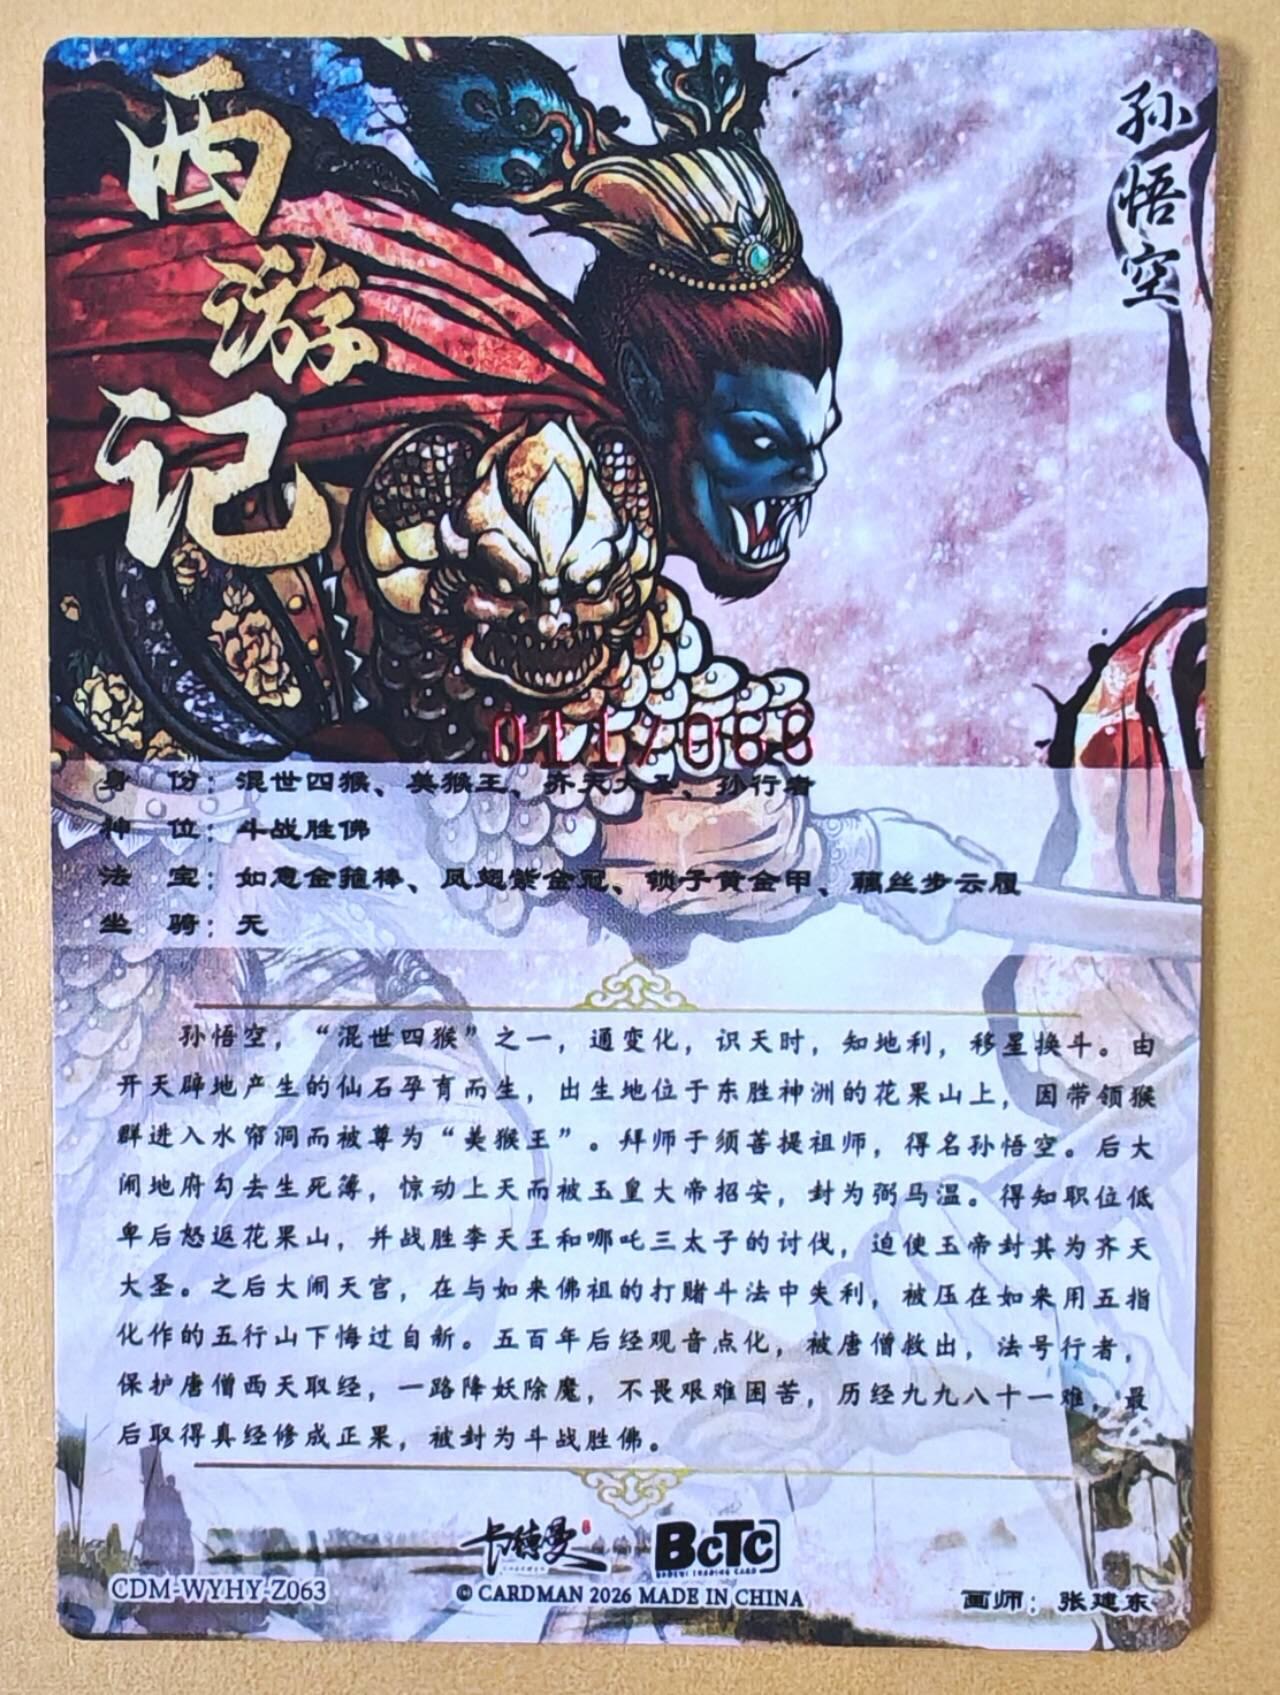 西游记
孙悟空
011/068
身 份：混世四猴、美猴王、齐天大圣、孙行者
神 位：斗战胜佛
法 宝：如意金箍棒、凤翅紫金冠、锁子黄金甲、藕丝步云履
坐 骑：无
孙悟空，“混世四猴”之一，通变化，识天时，知地利，移星换斗。由
开天辟地产生的仙石孕育而生，出生地位于东胜神洲的花果山上，因带领猴
群进入水帘洞而被尊为“美猴王”。拜师于须菩提祖师，得名孙悟空。后大
闹地府勾去生死簿，惊动上天而被玉皇大帝招安，封为弼马温。得知职位低
卑后怒返花果山，并战胜李天王和哪吒三太子的讨伐，迫使玉帝封其为齐天
大圣。之后大闹天宫，在与如来佛祖的打赌斗法中失利，被压在如来用五指
化作的五行山下悔过自新。五百年后经观音点化，被唐僧救出，法号行者，
保护唐僧西天取经，一路降妖除魔，不畏艰难困苦，历经九九八十一难，最
后取得真经修成正果，被封为斗战胜佛。
卡德曼
BCTC
CDM-WYHY-Z063
© CARDMAN 2026 MADE IN CHINA
画师：张建东